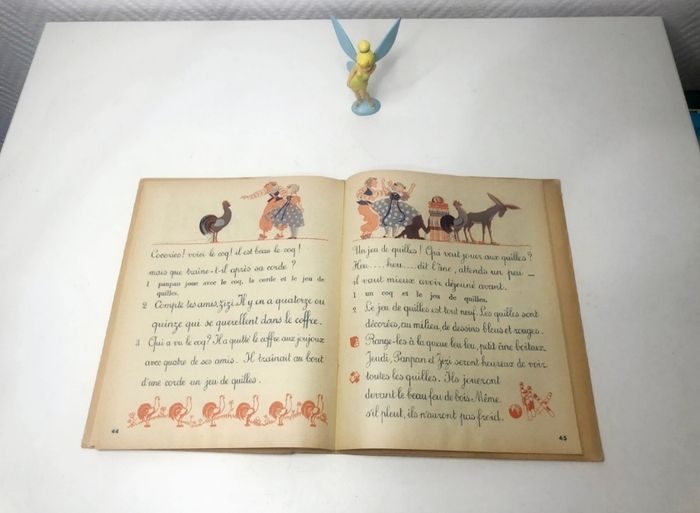 Cocorico! voici le coq! il est beau le coq!
mais que traîne-t-il après sa corde?
1 panpan joue avec le coq, la corde et le jeu de
quilles.
2 Compte tes amis, Zizi. Il y en a quatorze ou
quinze qui se querellent dans le coffre.
3 Qui a vu le coq? Il a quitté le coffre aux joujoux
avec quatre de ses amis. Il traînait au bout
d'une corde un jeu de quilles.
44
Un jeu de quilles! Qui veut jouer aux quilles?
Heu....heu....dit l'âne, attends un peu _
il vaut mieux avoir déjeuné avant.
1 un coq et le jeu de quilles.
2 Le jeu de quilles est tout neuf. Les quilles sont
décorées, au milieu, de dessins bleus et rouges.
Range-les à la queue leu leu, petit âne boiteux
Jeudi, Panpan et Zizi seront heureux de voir
toutes les quilles. Ils joueront
devant le beau feu de bois. Même
s'il pleut, ils n'auront pas froid.
45